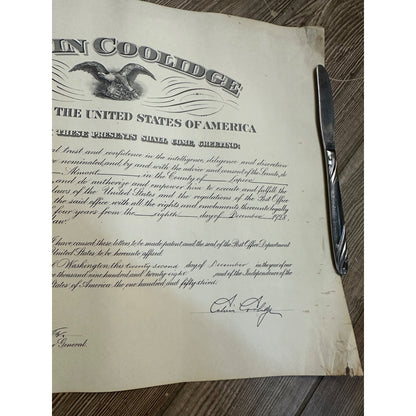 IN COOLIDGE
THE UNITED STATES OF AMERICA
THESE PRESENTS SHALL COME, GREETING:
trust and confidence in the intelligence, diligence and discretion
nominated, and by and with the advice and consent of the Senate, do
Almont, in the County of Lapeer
and do authorize and empower him to execute and fulfill the
laws of the United States and the regulations of the Post Office
the said office, with all the rights and emoluments thereunto legally
four years from the eighth day of December, 1928
law.
I have caused these letters to be made patent and the seal of the Post Office Department
United States to be hereunto affixed
Washington, this twenty second day of December in the year of our
thousand nine hundred and twenty eight, and of the Independence of the
States of America, the one hundred and fifty third.
Calvin Coolidge
General.